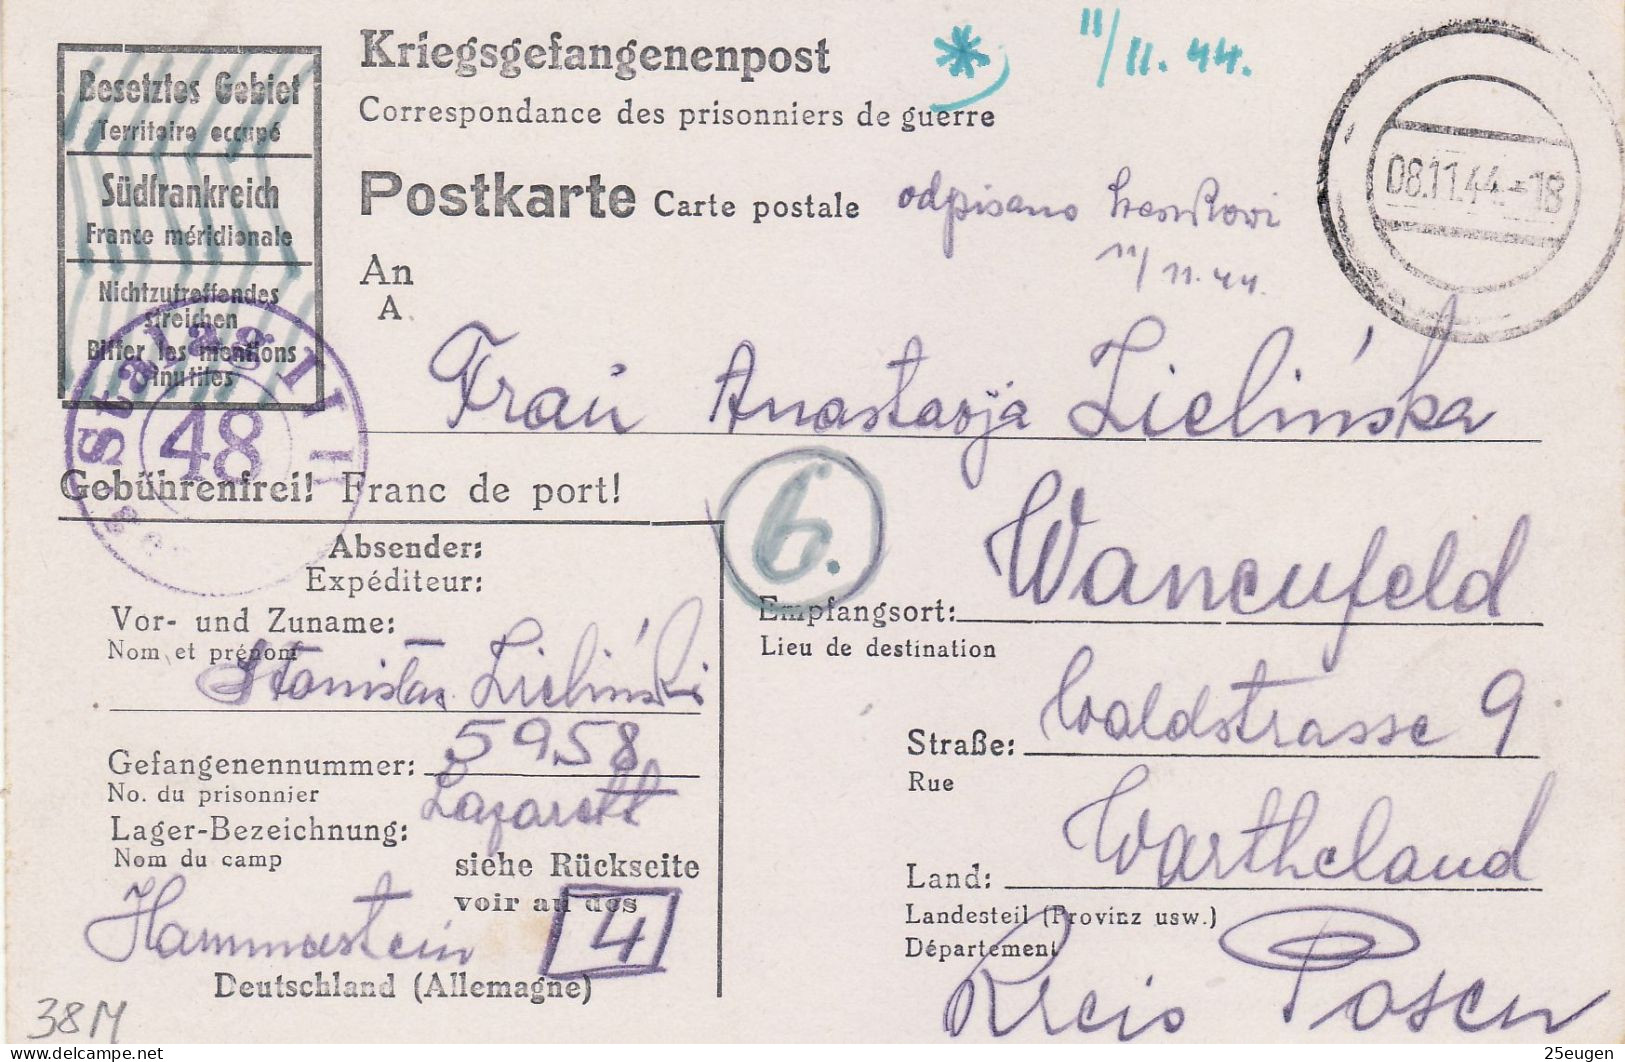 Kriegsgefangenenpost
Correspondance des prisonniers de guerre
11/11.44.
Besetztes Gebiet
Territoire occupé
Südfrankreich
France méridionale
Nichtzutreffendes
streichen
Biffer les mentions
inutiles
Postkarte Carte postale
odpisano
11/11.44.
08.11.44.-18
An
A
Stalag II
48
Frau Anastazja Zielińska
Gebührenfrei! Franc de port!
6.
Absender:
Expéditeur:
Vor- und Zuname:
Nom et prénom
Stanisław Zieliński
Gefangenennummer: 5958
No. du prisonnier
Lazarett
Lager-Bezeichnung:
Nom du camp
siehe Rückseite
voir au dos
Hammerstein
4
Deutschland (Allemagne)
Empfangsort: Wancufeld
Lieu de destination
Straße: Waldstrasse 9
Rue
Land: Wartheland
Landesteil (Provinz usw.)
Département
Kreis Posen
38M
25eugen